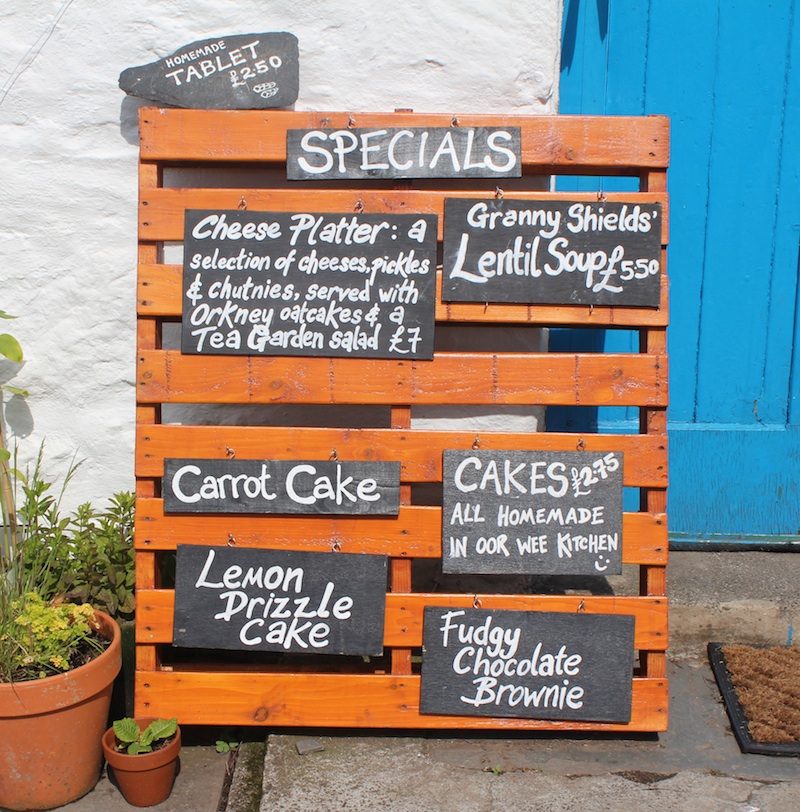 HOMEMADE
TABLET
£2.50
SPECIALS
Cheese Platter: a
selection of cheeses, pickles
& chutnies, served with
Orkney oatcakes & a
Tea Garden salad £7
Granny Shields'
Lentil Soup £5.50
Carrot Cake
CAKES £2.75
ALL HOMEMADE
IN OOR WEE KITCHEN
Lemon
Drizzle
Cake
Fudgy
Chocolate
Brownie